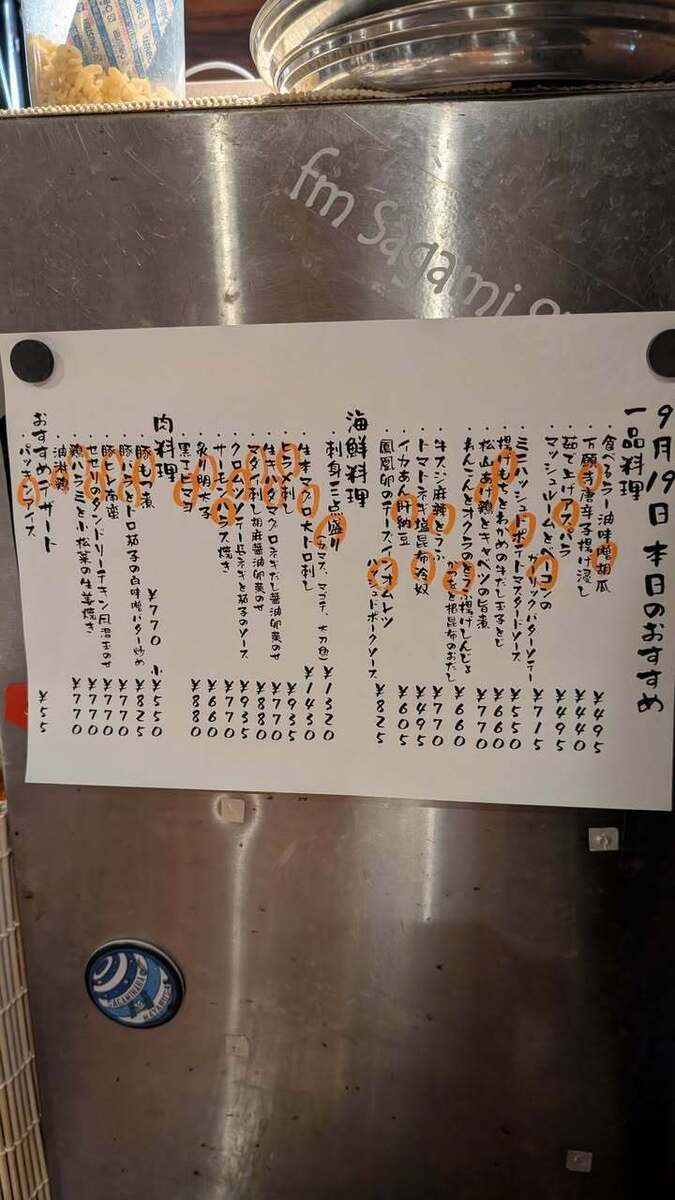 fm Sagami
9月19日本日のおすすめ
一品料理
・食べるラー油味噌胡瓜 ¥495
・万願寺唐辛子揚げ浸し ¥440
・茹で上げアスパラ ¥495
・マッシュルームとベーコンの
ガーリックバターソテー ¥715
・ミニハッシュドポテトマスタードソース ¥550
・揚げ とわかめの牛だし玉子とじ ¥660
・松山あげ鶏とキャベツの旨煮 ¥770
・れんこんとオクラのとうふ揚げしんじょう
と根昆布のおだし ¥660
・牛スジ麻辣とうふ ¥770
・トマトネギ塩昆布冷奴 ¥495
・イカあん肝納豆 ¥605
・鳳凰卵のチーズインオムレツ
ハッシュドポークソース ¥825
海鮮料理
・刺身三点盛り ¥1320
・生本マグロ大トロ刺し ¥1430
・ヒラメ刺し ¥935
・生キハダマグロネギだし醤油卵黄のせ ¥770
・マダイ刺し胡麻醤油卵黄のせ ¥880
・クロムツソテー長ネギと茄子のソース ¥935
・サーモンハラス焼き ¥770
・炙り明太子 ¥660
・黒エビマヨ ¥880
肉料理
・豚もつ煮 ¥770 小¥550
・豚バラとトロ茄子の白味噌バター炒め ¥825
・豚ヒレ南蛮 ¥770
・セセリのタンドリーチキン風温玉のせ ¥770
・鶏ハラミと小松菜の生姜焼き ¥770
・油淋鶏 ¥770
おすすめデザート
・パッションアイス ¥55
SAGAMIHARA